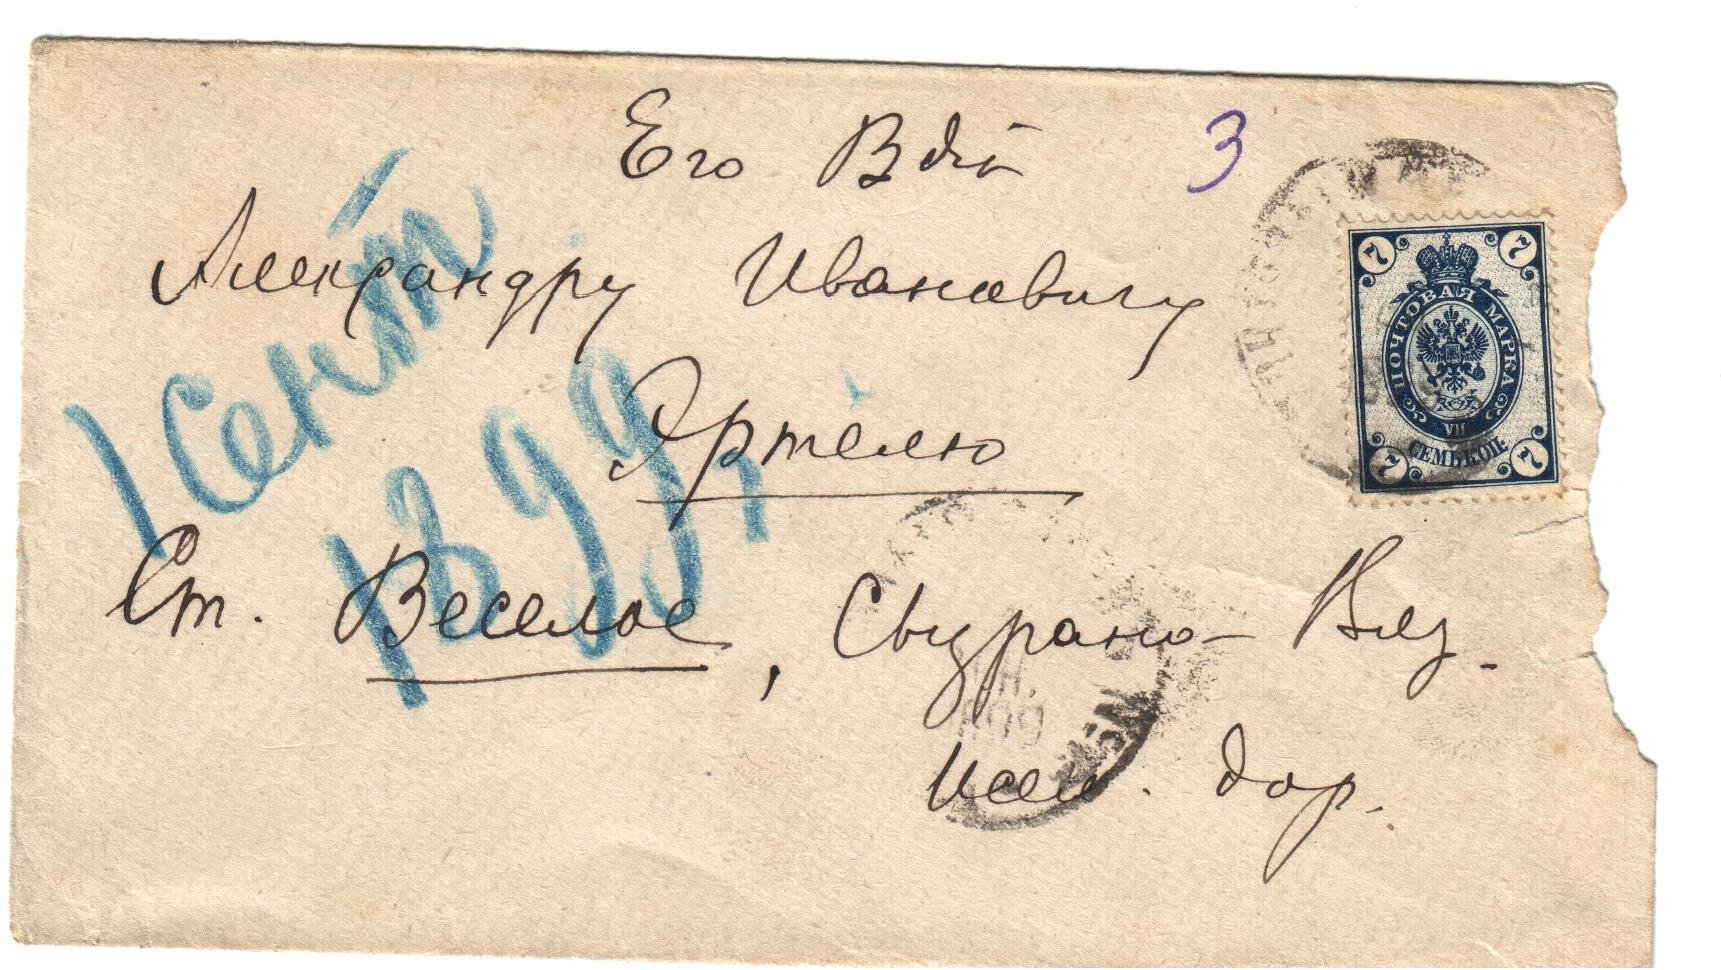 Его Вдiю
3
Александру Ивановичу
Эртелю
1 Сент
1899
Ст. Веселое, Сызрано-Вяз.
жел. дор.
7 7
ПОЧТОВАЯ МАРКА
VII
СЕМЬ КОП:
7 7